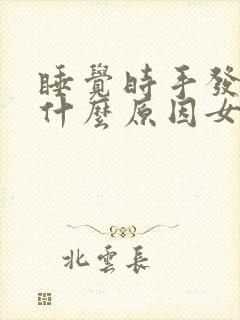 睡覺時手發
什麼原因女
北雲長